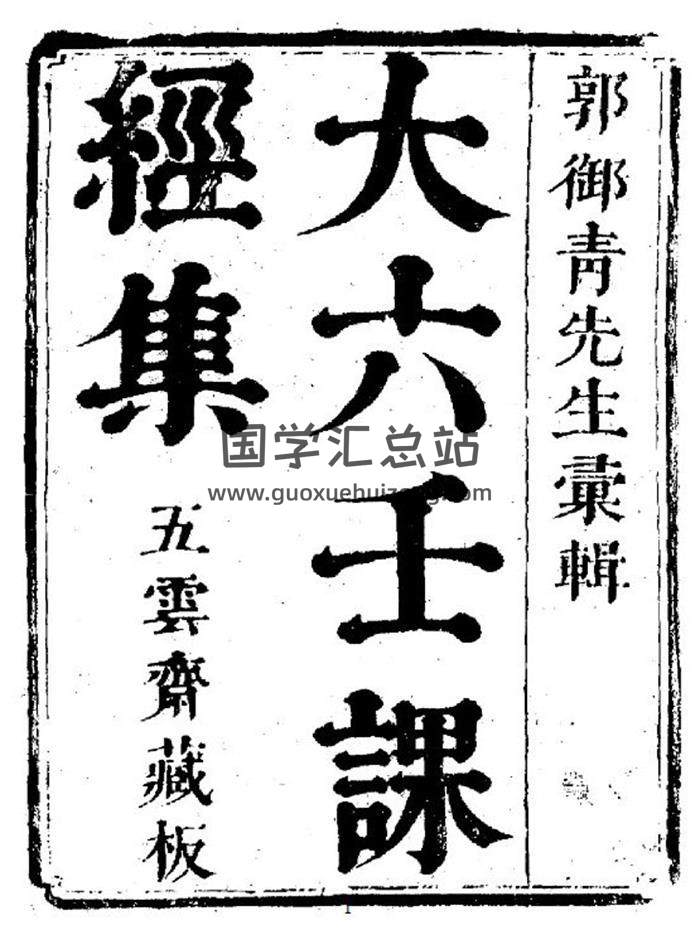 郭御青先生彚輯
大六壬課
經集
五雲齋藏板
国学汇总站
www.guoxuehuizong.com
1